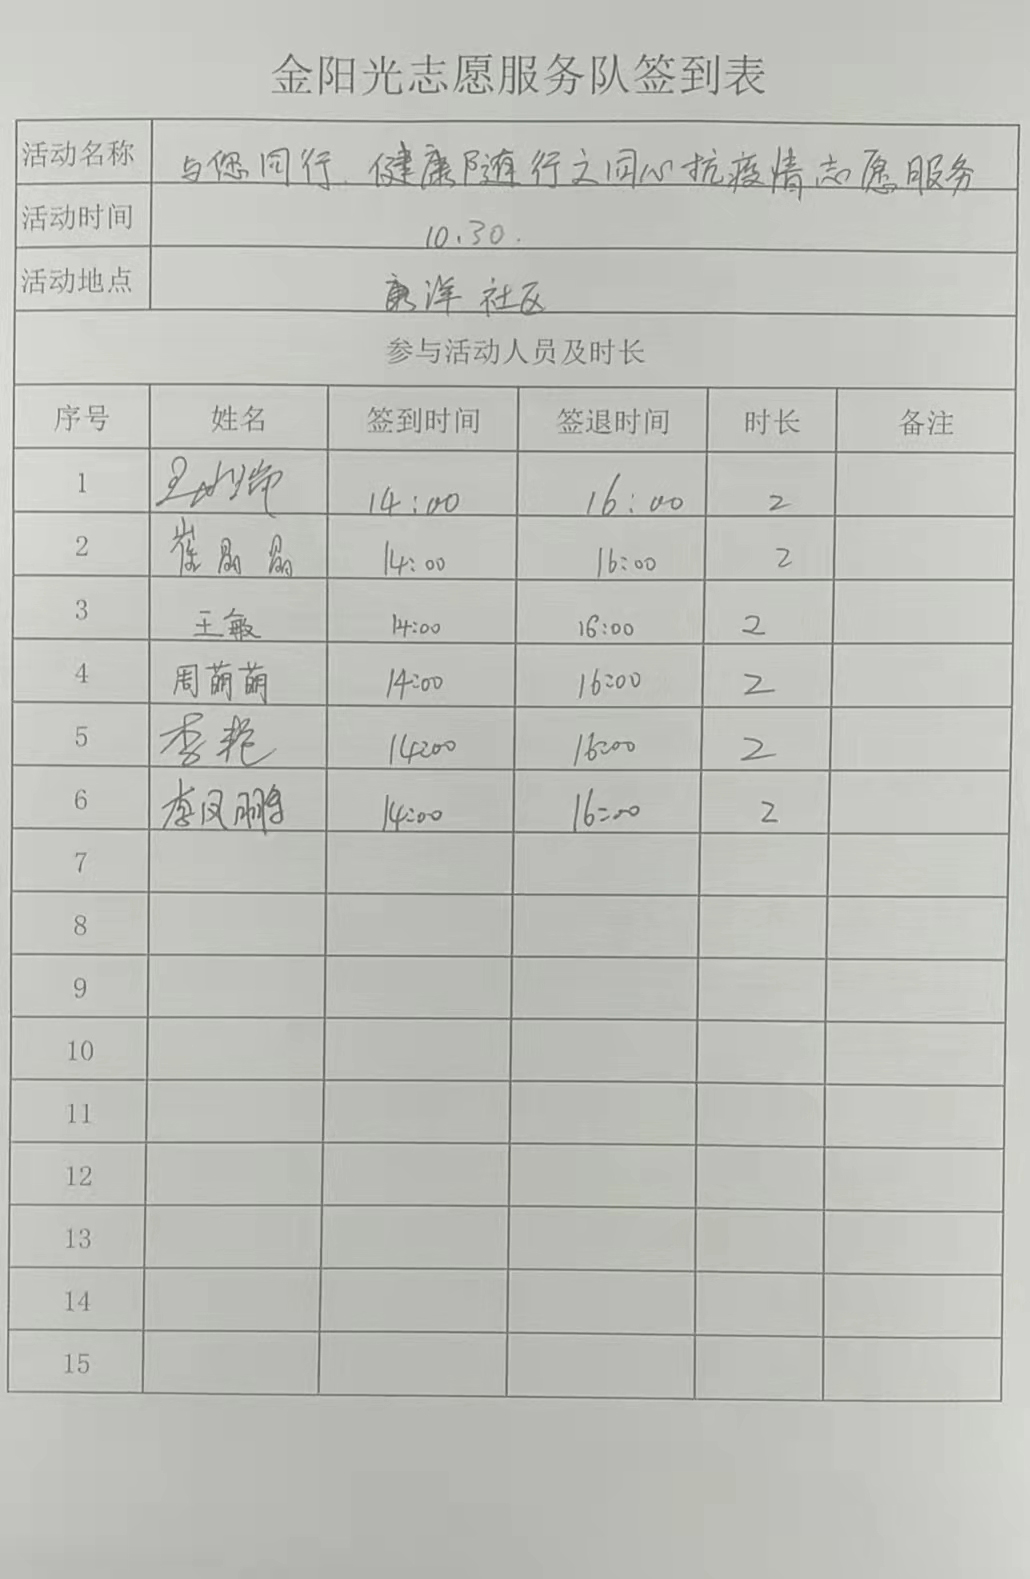 金阳光志愿服务队签到表
活动名称 与您同行 健康随行之同心抗疫情志愿服务
活动时间 10.30.
活动地点 康洋社区
参与活动人员及时长
序号 姓名 签到时间 签退时间 时长 备注
1 14:00 16:00 2
2 崔晶晶 14:00 16:00 2
3 王敏 14:00 16:00 2
4 周萌萌 14:00 16:00 2
5 李艳 14:00 16:00 2
6 李凤鹏 14:00 16:00 2
7
8
9
10
11
12
13
14
15